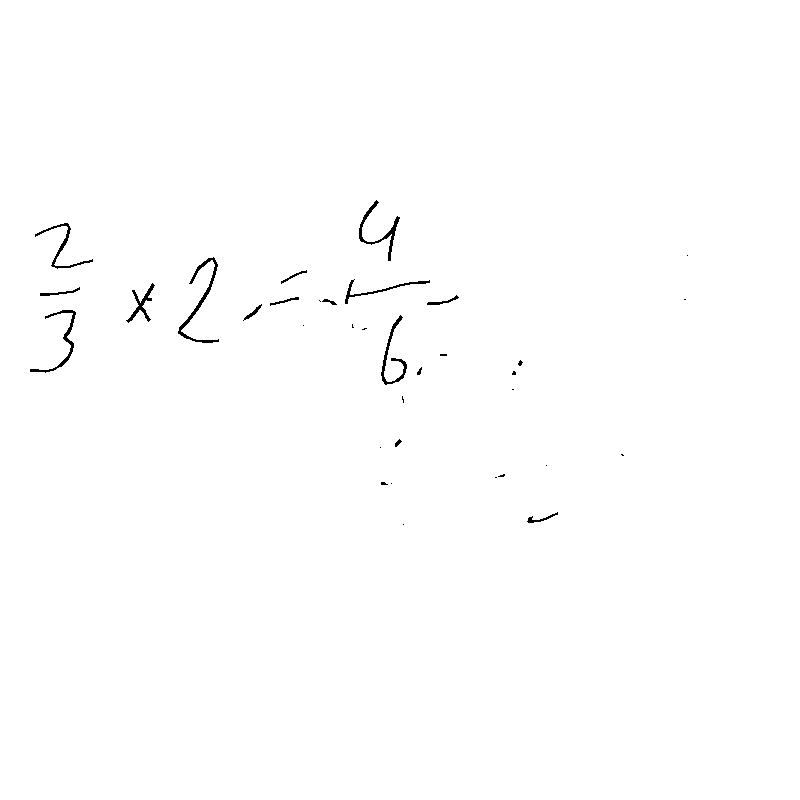 2/3 × 2 = 4/6